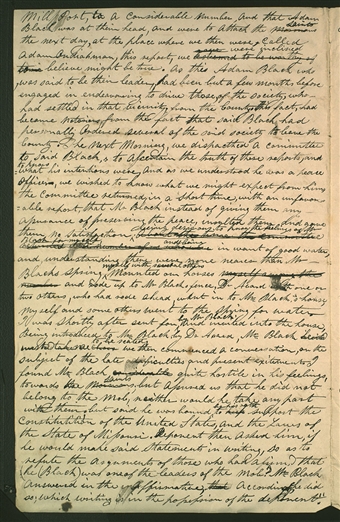 Mill Port, to a Considerable Number, and that Adam
Black was at their head, and were to attack the Saints
the next day, at the place where we then were, Called
Adam Ondiahman, this report, we were inclined to
believe might be true; As this Adam Black who
was said to be their leader, had been but a few months before
engaged in endeavoring to drive those, of the society, who
had settled in that vicinity, from the County. This fact, had
became notorious, from the fact that said Black, had
personally ordered several of the said society to leave the
County. The Next Morning, we dispatched a committee
to said Black, to ascertain the truth of these reports, and
to know what his intentions were, And as we understood he was a peace
officer, we wished to know what we might expect from him,
the Committee returned, in a short time, with an unfavor-
able report, that Mr Black instead of giving them any
assurance of preserving the peace, insulted them and gave
them, no satisfaction, being desirous to know the feelings of Mr
Black for myself and being in want of good water
and understanding there were none nearer than Mr
Blacks Spring, myself with several others Mounted our horses
and rode up to Mr Blacks fence, Dr Avard with one or
two others, who had rode ahead went in to Mr Black's house,
myself and some others went to the spring for water
I was shortly after sent for, by Mr Black and invited into the house,
Being introduced to Mr Black, by Dr Avard, Mr Black
wished me to be seated, we then commenced a conversation, on the
subject of the late difficulties, and present excitement, I
found Mr Black quite hostile in his feelings,
towards the Saints, but assured us that he did not
belong to the Mob, neither would he take any part
with them, but said he was bound by his oath to support the
Constitution of the United States, and the Laws of
the State of Missouri. Deponent then asked him, if
he would make said Statement in writing, so as to
refute the arguments of those who had affirmed that
he (Black) was one of the leaders of the mob? Mr Black
Answered in the affirmative. Accordingly he did
so, which writing is in the possession of the deponents